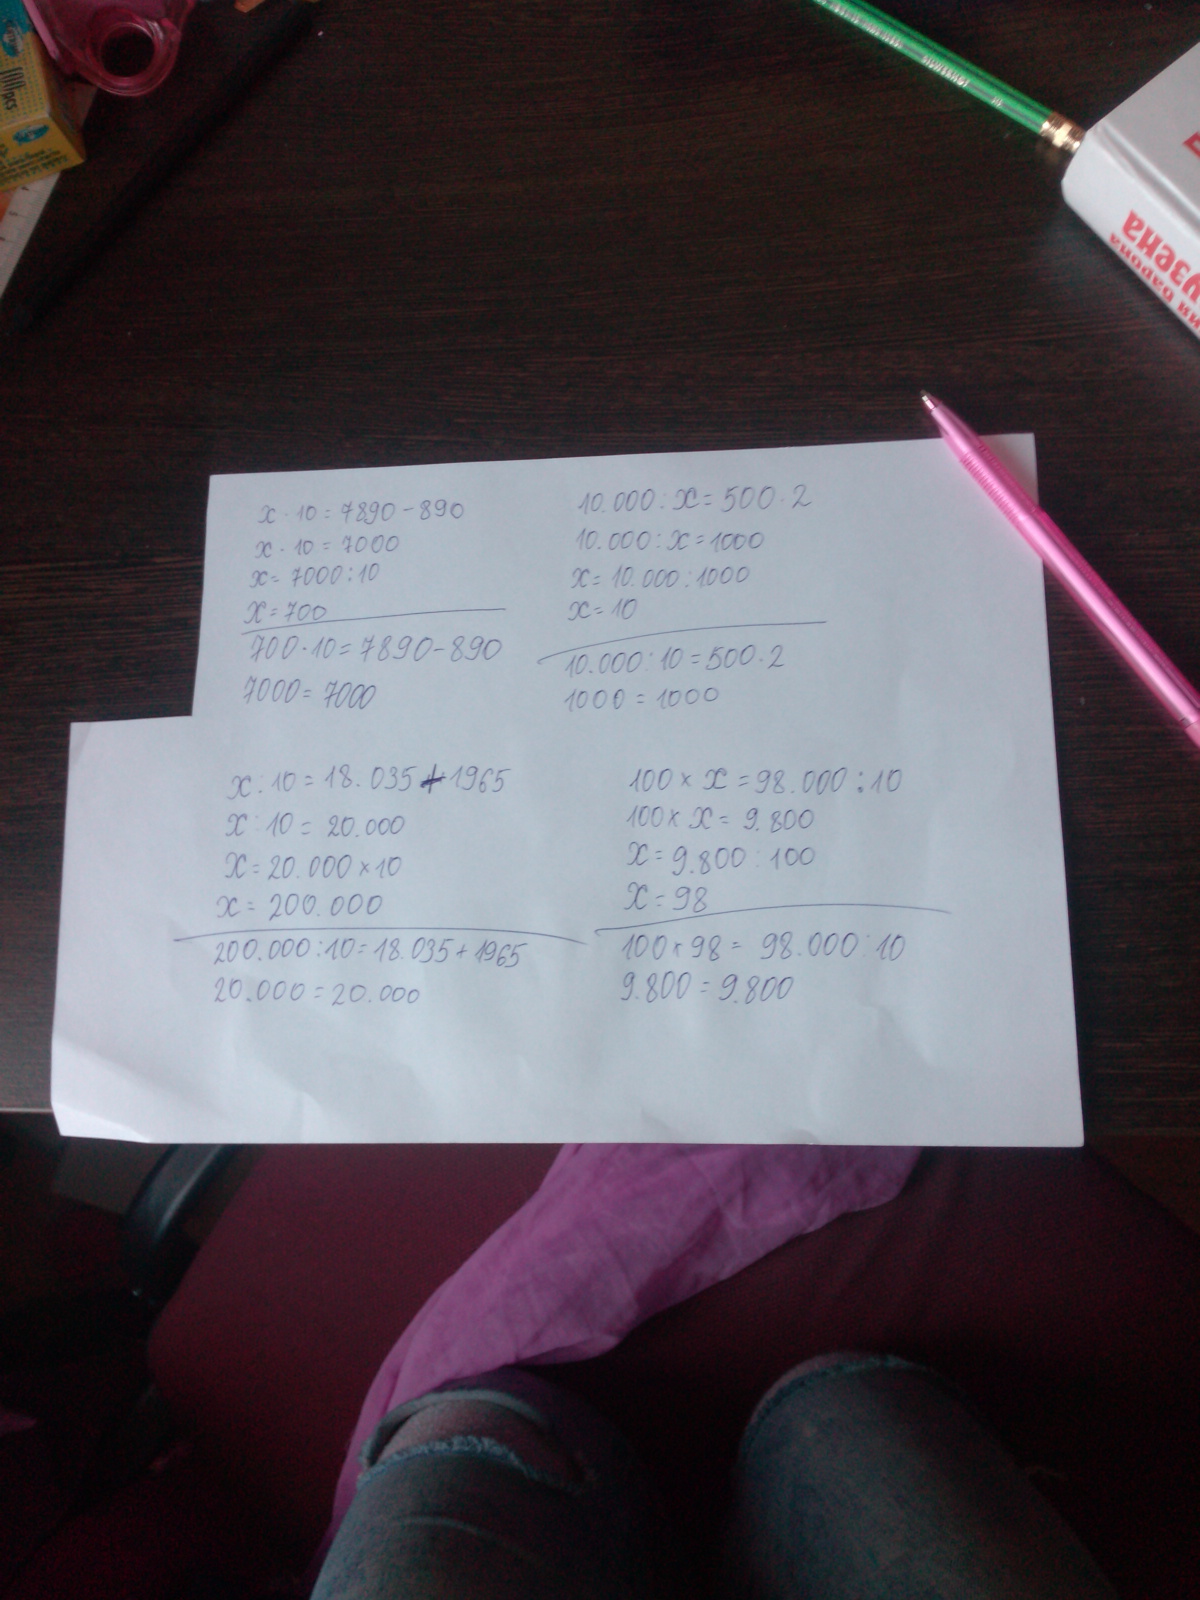 100pcs
узена
x · 10 = 7890 - 890
x · 10 = 7000
x = 7000 : 10
x = 700
700 · 10 = 7890 - 890
7000 = 7000
10.000 : x = 500 · 2
10.000 : x = 1000
x = 10.000 : 1000
x = 10
10.000 : 10 = 500 · 2
1000 = 1000
x : 10 = 18.035 + 1965
x : 10 = 20.000
x = 20.000 × 10
x = 200.000
200.000 : 10 = 18.035 + 1965
20.000 = 20.000
100 × x = 98.000 : 10
100 × x = 9.800
x = 9.800 : 100
x = 98
100 × 98 = 98.000 : 10
9.800 = 9.800